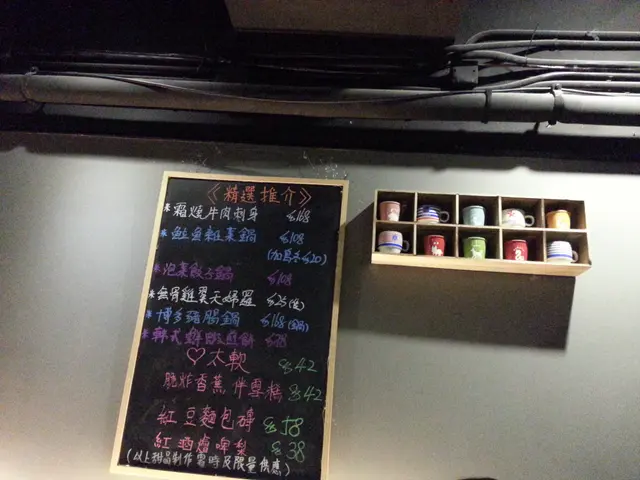 《精選推介》
*霜燒牛肉刺身 $168
*魚雜菜鍋 $108
(加烏冬$20)
*泡菜餃子鍋 $108
*無骨雞翼天婦羅 $26(隻)
*博多豬腸鍋 $168(鍋)
*韓式鮮煎餅 $78
♡太軟 $42
脆炸香蕉伴雪糕 $42
紅豆麵包磚 $58
紅酒燴啤梨 $38
(以上甜品制作需時及限量供應)